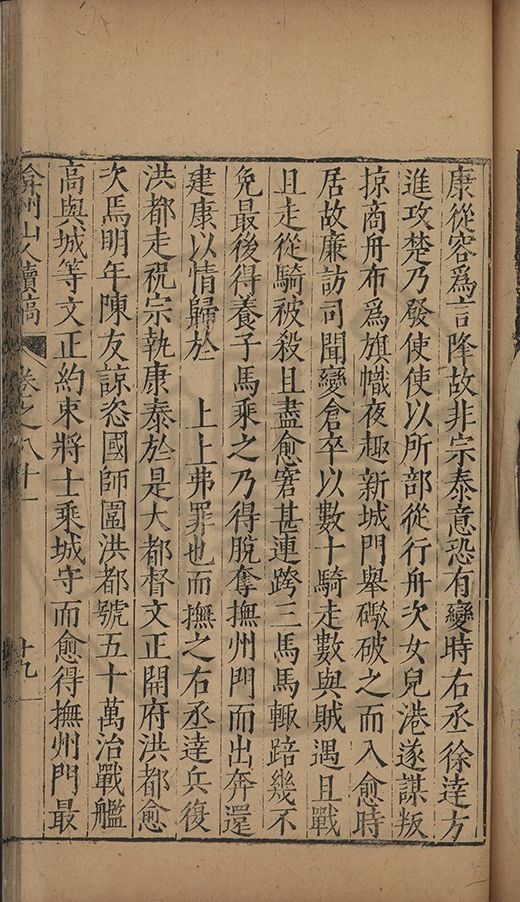 康從容爲言降故非宗泰意恐有變時右丞徐達方
進攻楚乃發使使以所部從行舟次女兒港遂謀叛
掠商舟布爲旗幟夜趣新城門舉礮破之而入愈時
居故廉訪司聞變倉卒以數十騎走數與賊遇且戰
且走從騎被殺且盡愈窘甚連跨三馬馬輒踣幾不
免最後得養子馬乘之乃得脫奪撫州門而出奔還
建康以情歸於　上上弗罪也而撫之右丞達兵復
洪都走祝宗執康泰於是大都督文正開府洪都愈
次焉明年陳友諒恣國師圍洪都號五十萬治戰艦
高與城等文正約束將士乘城守而愈得撫州門最
弇州山人續稿　卷之八十一　十九